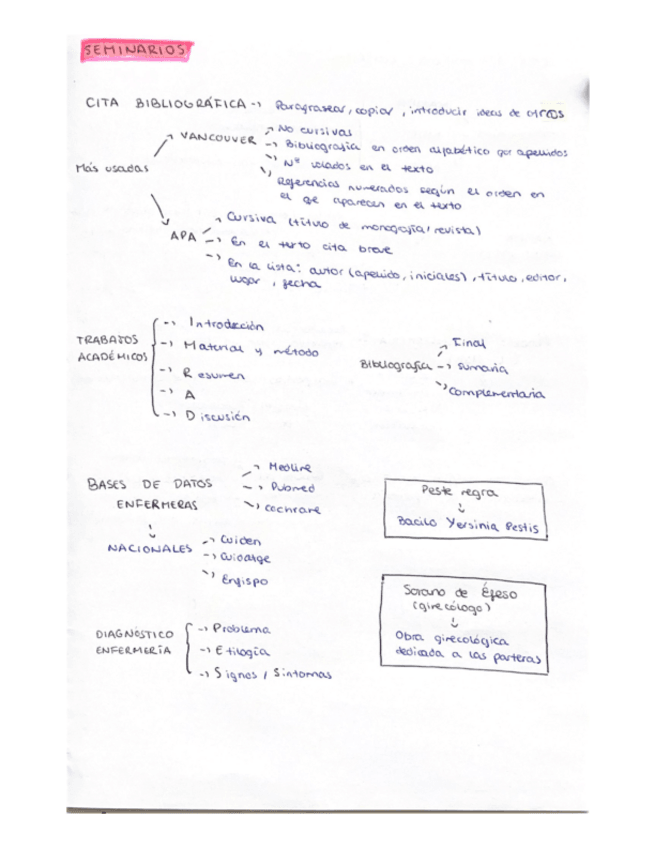 SEMINARIOS
CITA BIBLIOGRÁFICA -> Parafrasear, copiar, introducir ideas de otros
Más usadas
VANCOUVER
-> No cursivas
-> Bibliografía en orden alfabético por apellidos
-> Nº volados en el texto
-> Referencias numerados según el orden en
el qe aparecen en el texto
APA
-> Cursiva (título de monografía/revista)
-> En el texto cita breve
-> En la lista: autor (apellido, iniciales), título, editor,
lugar, fecha
TRABAJOS
ACADÉMICOS
-> Introducción
-> Material y método
-> Resumen
-> A
-> Discusión
Bibliografía
-> Final
-> Sumaria
-> Complementaria
BASES DE DATOS
ENFERMERAS
-> Medline
-> Pubmed
-> Cochrane
NACIONALES
-> Cuiden
-> Cuidatge
-> Enfispo
Peste negra
Bacilo Yersinia Pestis
Sorano de Éfeso
(ginecólogo)
Obra ginecológica
dedicada a las parteras
DIAGNÓSTICO
ENFERMERÍA
-> Problema
-> Etilogía
-> Signos / Síntomas